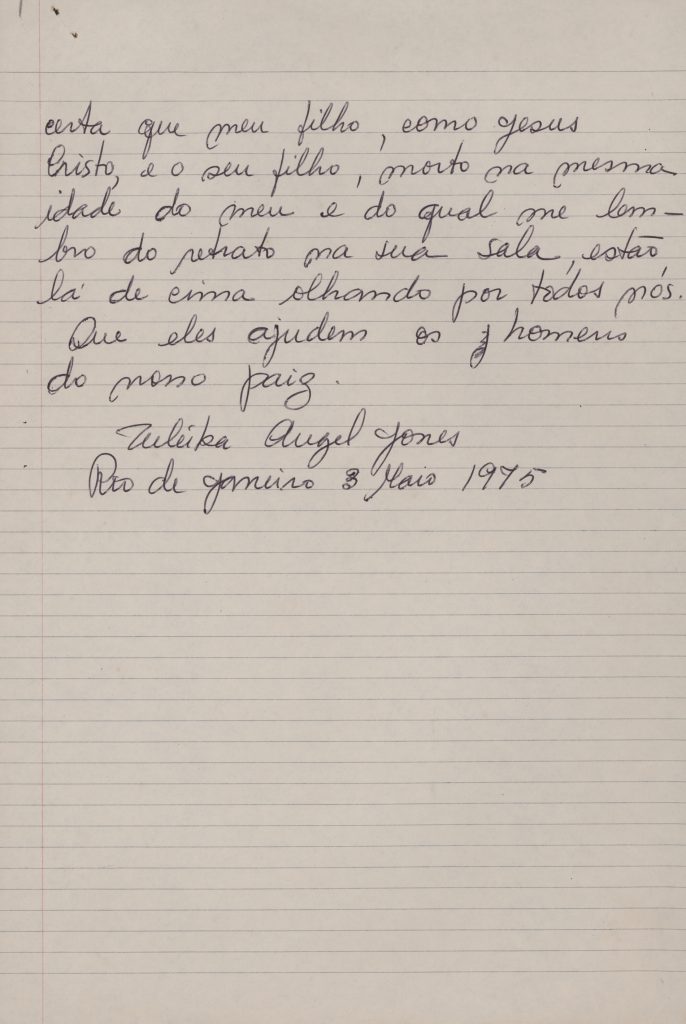 certa que meu filho, como Jesus
Cristo, e o seu filho, morto na mesma
idade do meu e do qual me lem-
bro do retrato na sua sala, estão
lá de cima olhando por todos nós.
Que eles ajudem os homens
do nosso paiz.
Zuleika Angel Jones
Rio de Janeiro 3 Maio 1975